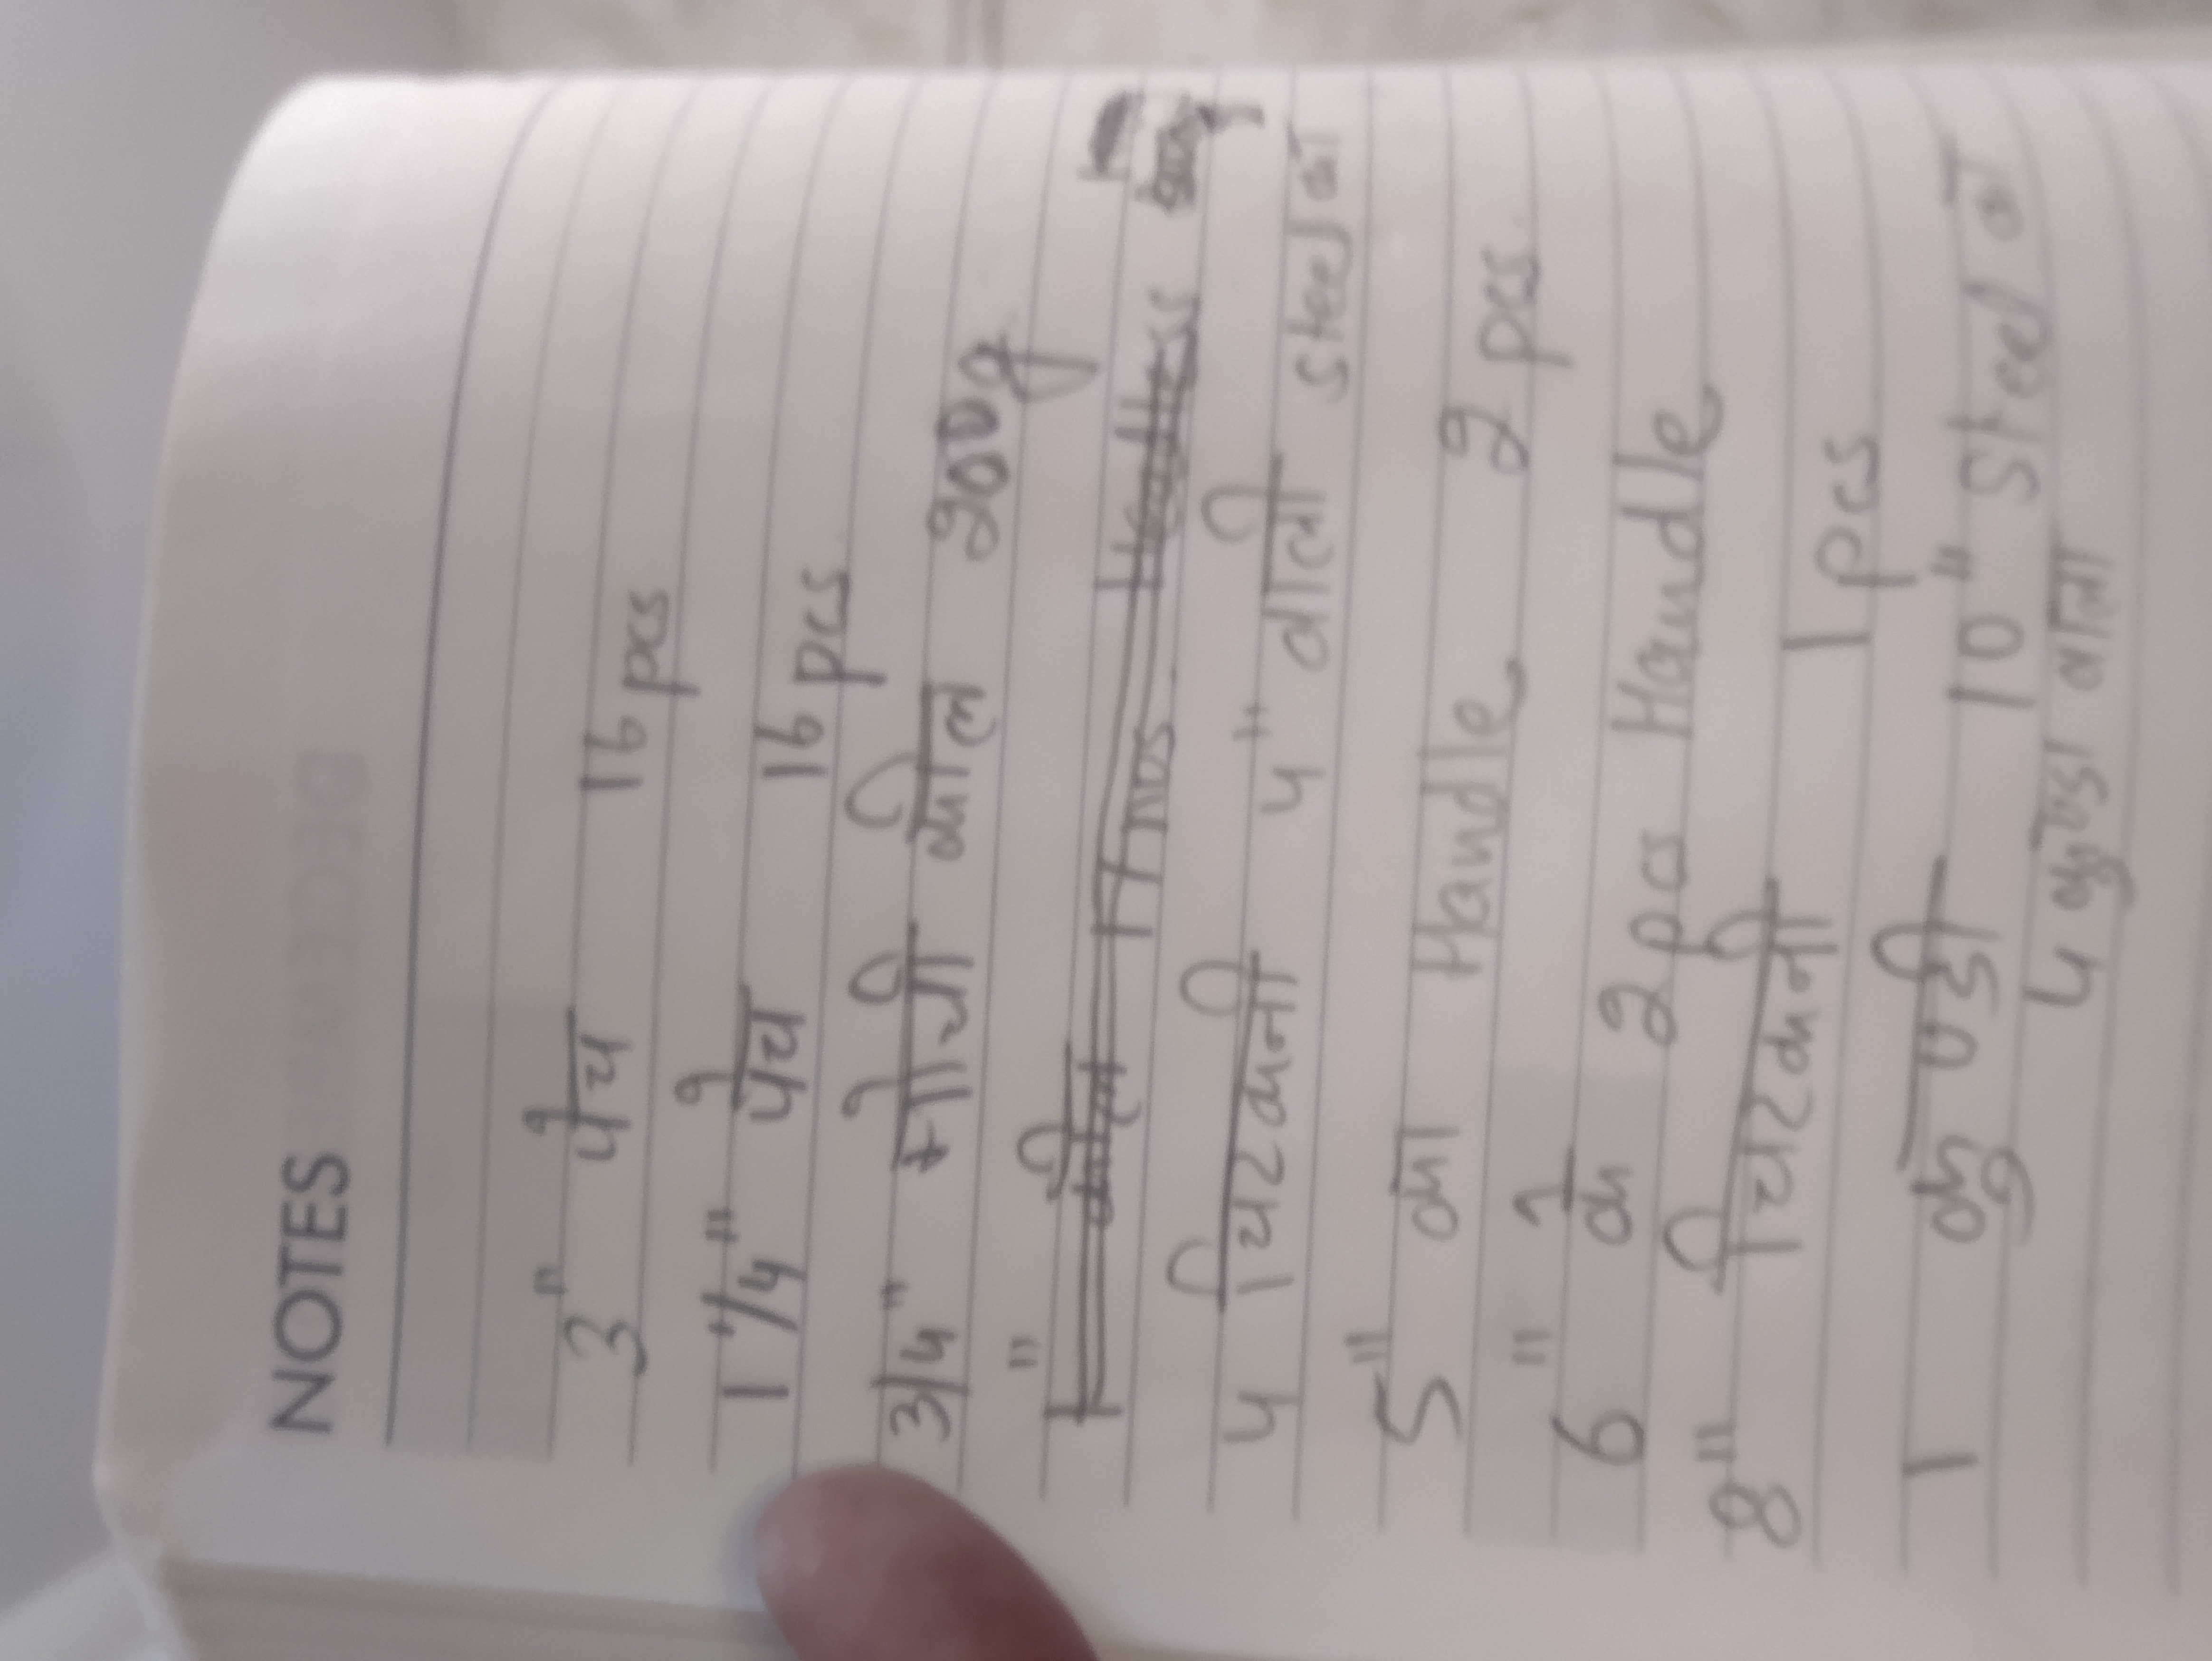 NOTES
3" पेच 16 pcs
1 1/4" पेच 16 pcs
3/4" मोची कील 200g
"
4 चिटकनी 4" वाली steel का
5" का Handle 2 pcs.
6" के 2 pcs Handle
8" चिटकनी 1 pcs
1 कुण्डी 10" Steel का
4 कुण्डा वाला